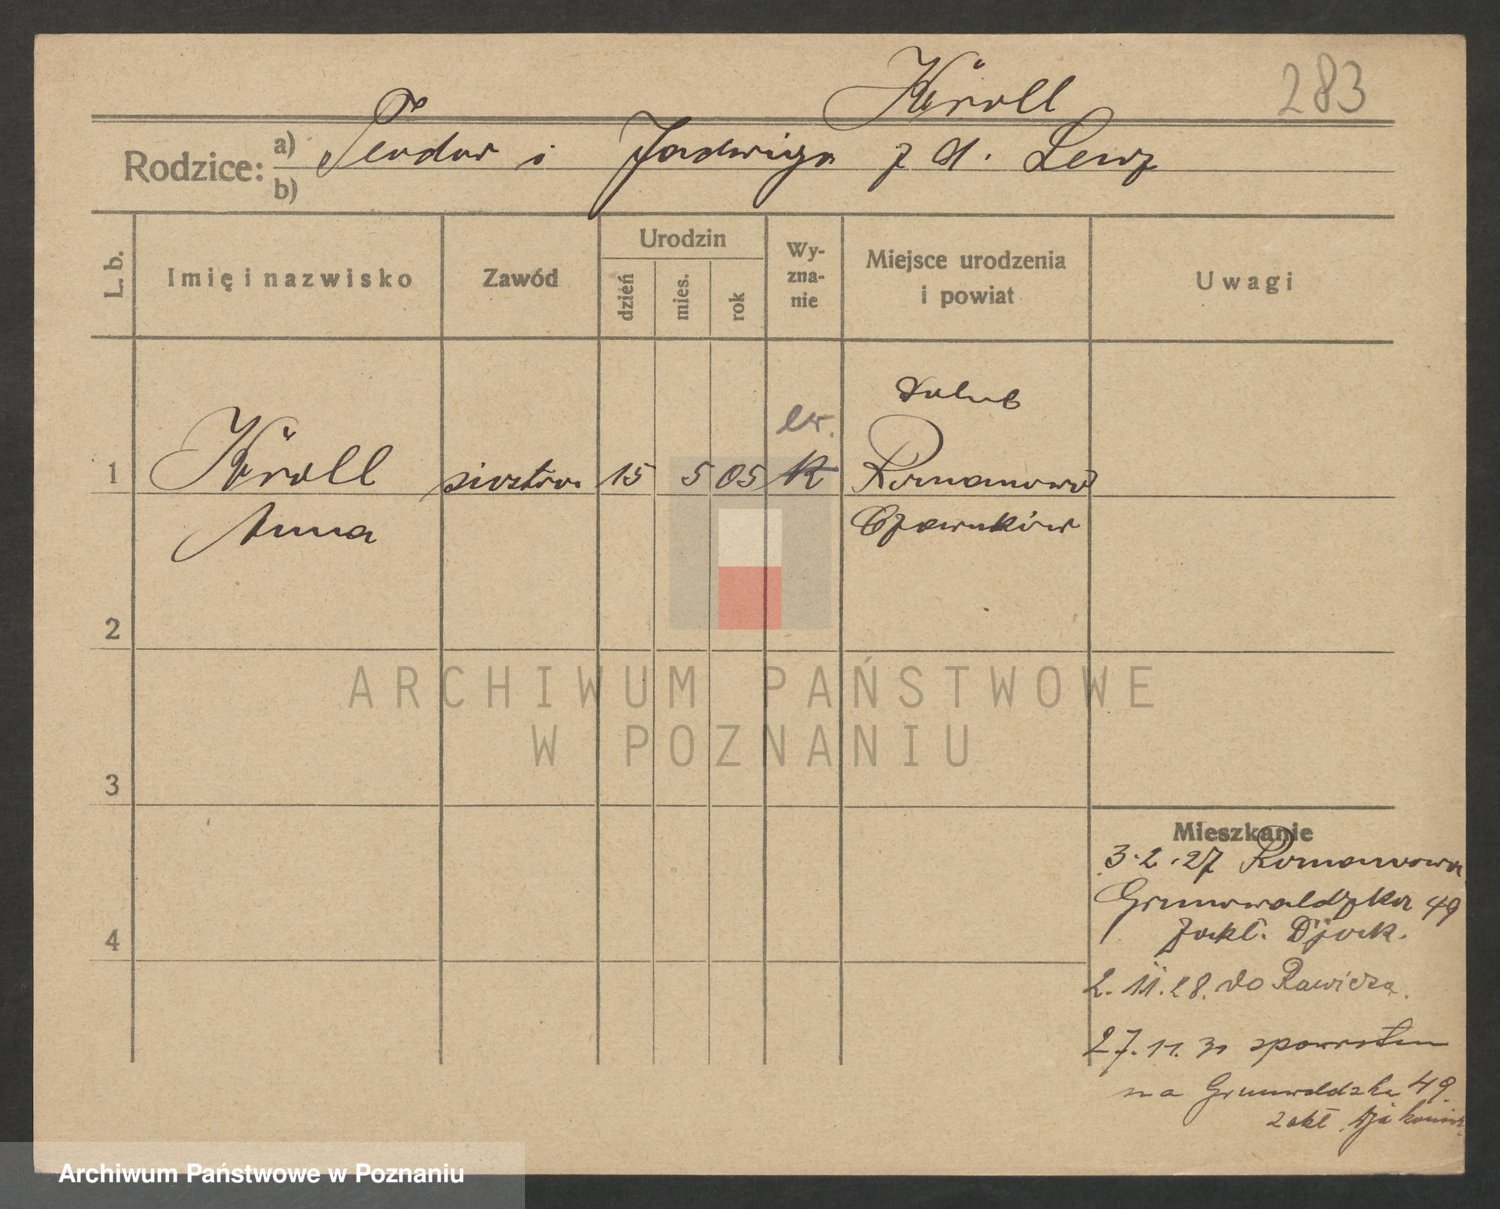 283
Kröll
Rodzice: a) Teodor i Jadwiga z d. Lenz
b)
L. b.
Imię i nazwisko
Zawód
Urodzin
dzień
mies.
rok
Wy-
zna-
nie
Miejsce urodzenia
i powiat
Uwagi
1
Kröll
Anna
siostra
15
5
05
ew.
K
Romanowo
Czarnków
2
3
4
ARCHIWUM PAŃSTWOWE
W POZNANIU
Mieszkanie
3.2.27 Romanowa
Grunwaldzka 49
zakł. Djak.
2.11.28. do Rawicza.
27.11.30 spowrotem
na Grunwaldzka 49.
zakł. Dja
Archiwum Państwowe w Poznaniu